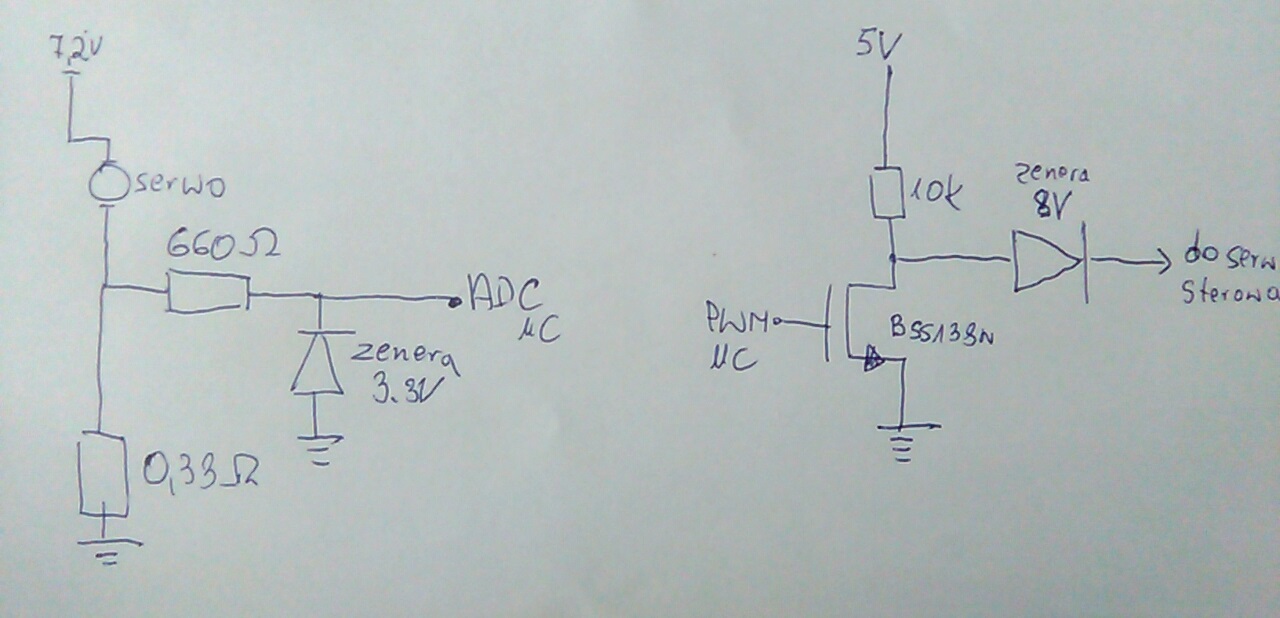 7,2V
serwo
660Ω
ADC
µC
zenera
3.3V
0,33Ω
5V
10k
zenera
8V
do serw
Sterowa
PWM
µC
BSS138N